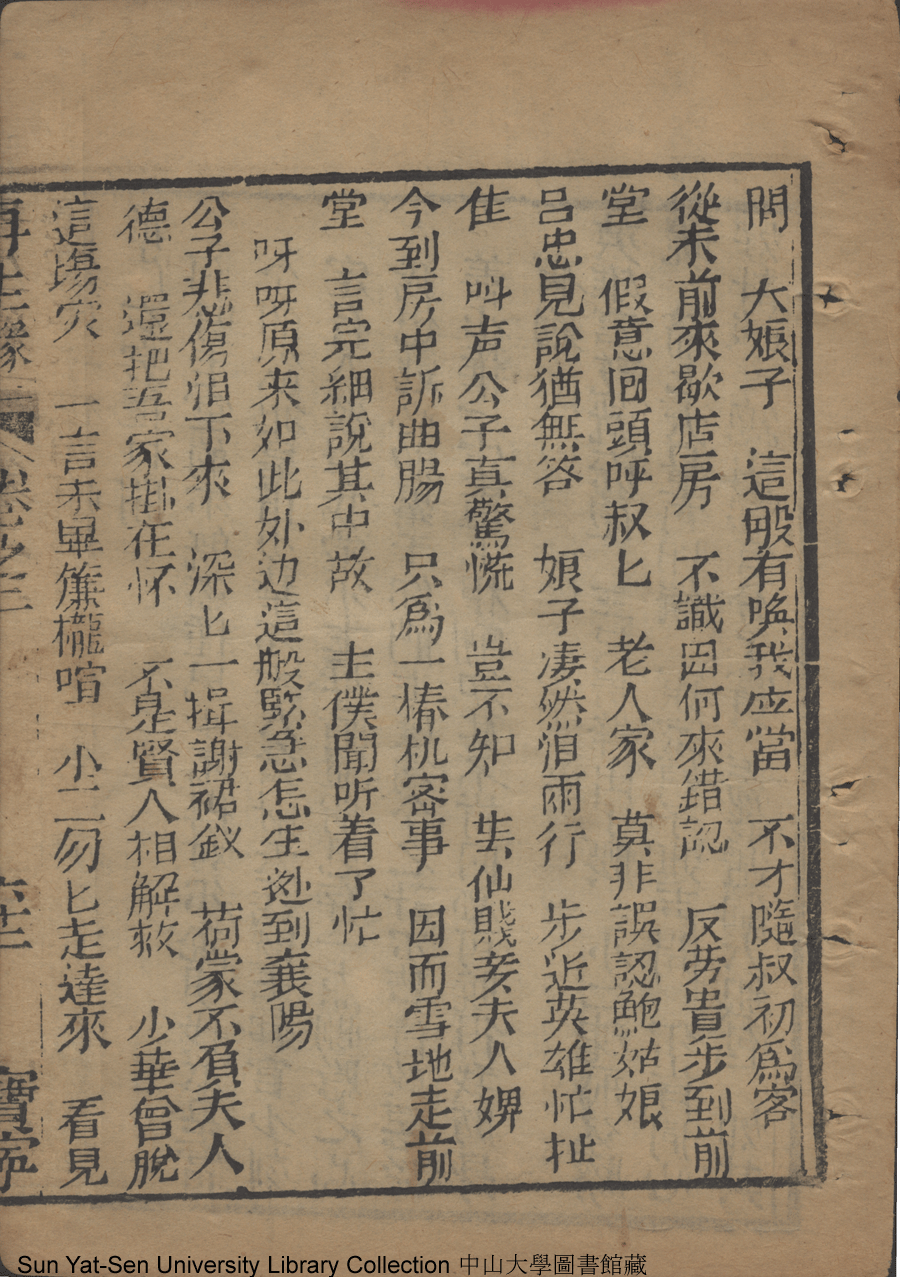 問　大娘子　這般有喚我应當　不才隨叔初爲客
從未前來歇店房　不識因何來錯認　反劳貴步到前
堂　假意囬頭呼叔匕　老人家　莫非誤認鮑姑娘
吕忠見說猶無答　娘子凄然泪雨行　步近英雄忙扯
住　呌声公子真驚慌　豈不知　仙賤妾夫人婢
今到房中訴曲腸　只爲一樁机密事　因而雪地走前
堂　言完細說其中故　主僕聞听着了忙
呀呀原来如此外边這般緊急怎生迯到襄陽
公子悲傷泪下來　深匕一揖謝裙釵　荷蒙不負夫人
德　還把吾家掛在怀　不是賢人相解救　少華曾脫
這塲灾　一言未畢簾櫳喧　小二勿匕走達來　看見
再生緣　卷之三　寳寧
Sun Yat-Sen University Library Collection 中山大學圖書館藏